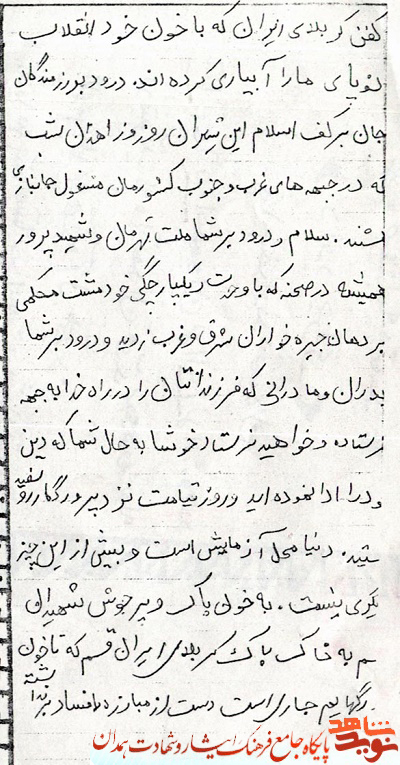 کفن کربلای ایران که با خون خود انقلاب
نوپای ما را آبیاری کرده اند. درود بر رزمندگان
جان بر کف اسلام این شیران روز و زاهدان شب
که در جبهه های غرب و جنوب کشورمان مشغول جانبازی
هستند. سلام و درود بر شما ملت قهرمان و شهید پرور
همیشه در صحنه که با وحدت و یکپارچگی خود مشت محکمی
بر دهان جیره خواران شرق و غرب زدید و درود بر شما
پدران و مادرانی که فرزندانتان را در راه خدا به جبهه
فرستاده و خواهید فرستاد خوشا به حال شما که دین
خود را ادا نموده اید و روز قیامت نزد پروردگار رو سفید
هستید. دنیا محل آزمایش است و بیش از این چیز
دیگری نیست. به خون پاک و پر جوش شهیدان
قسم به خاک پاک کربلای ایران قسم که تا خون
در رگهایم جاری است دست از مبارزه با فساد برنداشته
نوید شاهد
پایگاه جامع فرهنگ ایثار و شهادت همدان